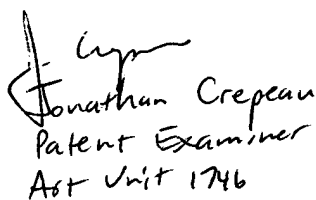 Jonathan Crepeau
Patent Examiner
Art Unit 1746